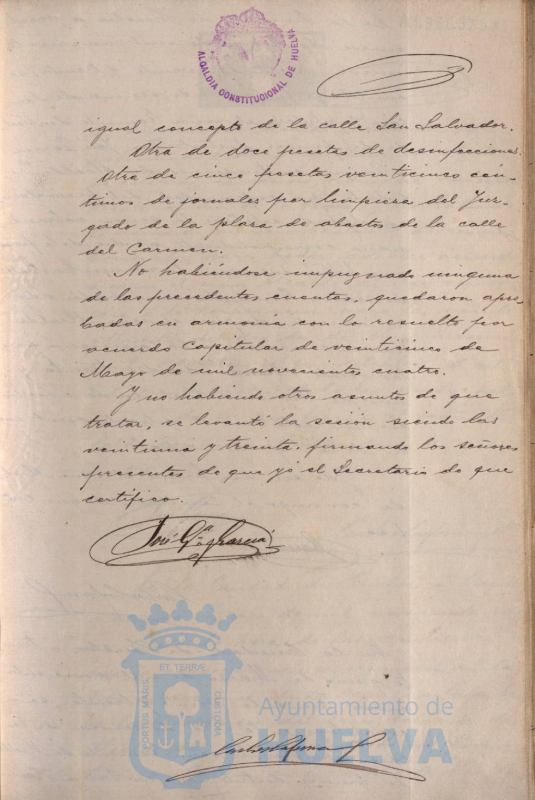 ALCALDIA CONSTITUCIONAL DE HUELVA
igual concepto de la calle San Salvador.
Otra de doce pesetas de desinfecciones.
Otra de cinco pesetas veinticinco cen-
timos de jornales por limpieza del Juz-
gado de la plaza de abastos de la calle
del Carmen.
No habiéndose impugnado ninguna
de las precedentes cuentas, quedaron apro-
badas en armonía con lo resuelto por
acuerdo Capitular de veinticinco de
Mayo de mil novecientos cuatro.
Y no habiendo otros asuntos de que
tratar, se levantó la sesión siendo las
veintiuna y treinta, firmando los señores
presentes de que yó el Secretario de que
certifico.
José Gª García
PORTUS MARIS ET TERRÆ CUSTODIA
Ayuntamiento de
HUELVA